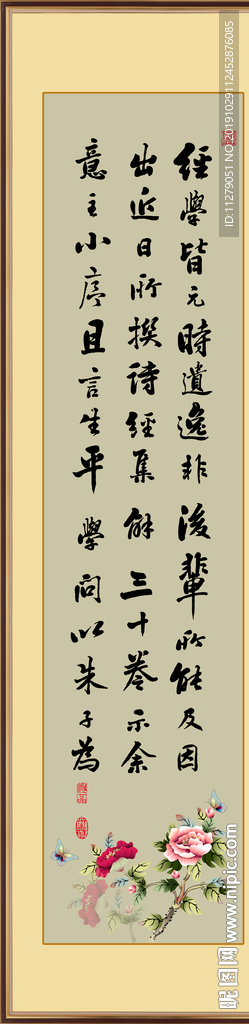 經學皆元時遺逸非後輩所能及因
出近日所撰詩經集解三十卷示余
意主小序且言生平學問以朱子為
ID:11279051 NO:20191029112452876085
昵图网 www.nipic.com